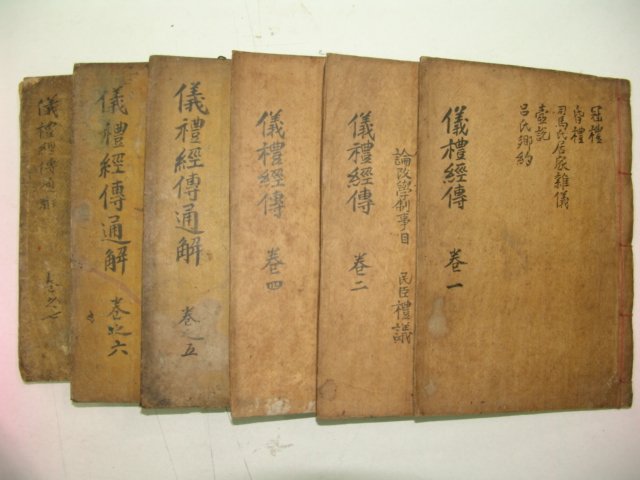 冠禮
昏禮
司馬氏居家雜儀
壺說
呂氏鄕約
儀禮經傳 卷一
論改學制事目
民臣禮議
儀禮經傳 卷二
儀禮經傳 卷四
儀禮經傳通解 卷之五
儀禮經傳通解 卷之六
儀禮經傳通解 卷之七